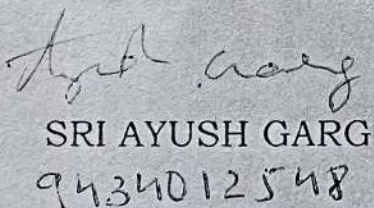 Ayush Garg
SRI AYUSH GARG
9434012548